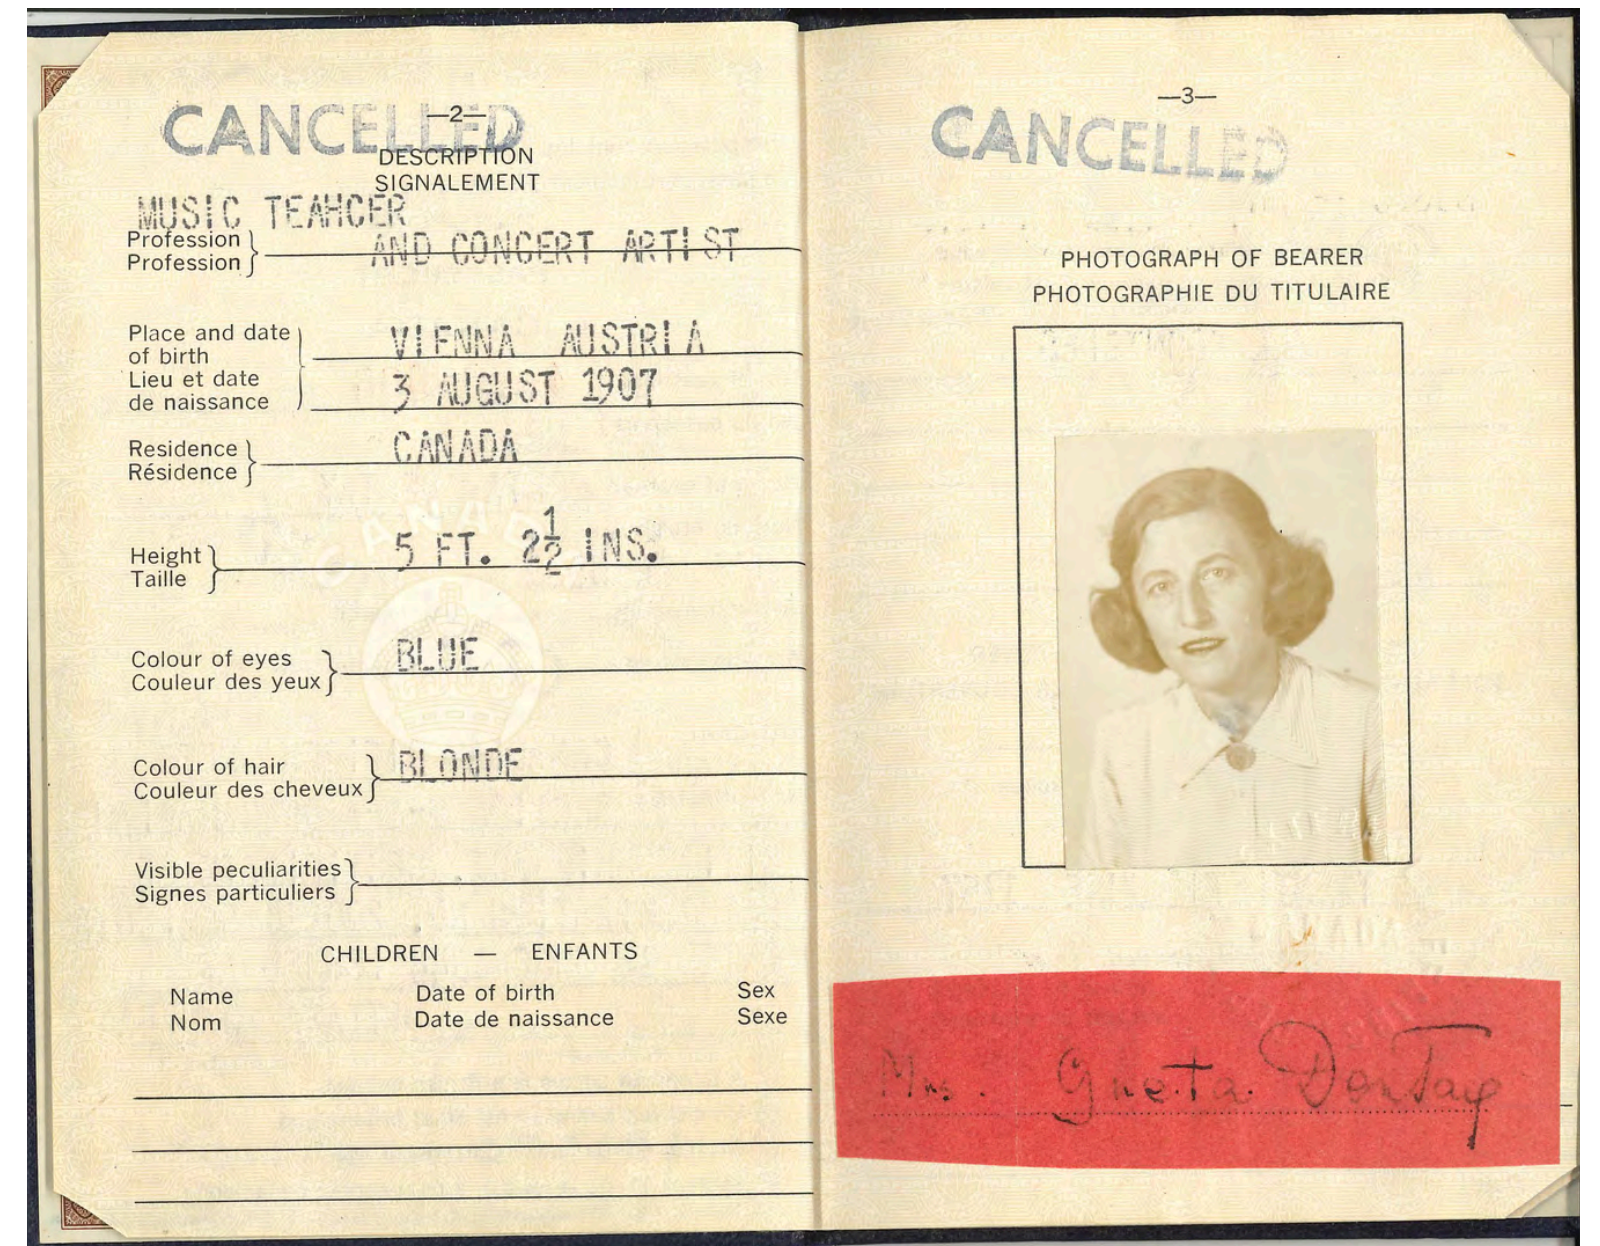 CANCELLED
—2—
DESCRIPTION
SIGNALEMENT
MUSIC TEAHCER
Profession
Profession
AND CONCERT ARTIST
Place and date
of birth
Lieu et date
de naissance
VIENNA AUSTRIA
3 AUGUST 1907
Residence
Résidence
CANADA
Height
Taille
5 FT. 2½ INS.
Colour of eyes
Couleur des yeux
BLUE
Colour of hair
Couleur des cheveux
BLONDE
Visible peculiarities
Signes particuliers
CHILDREN — ENFANTS
Name Date of birth Sex
Nom Date de naissance Sexe
CANADA
—3—
CANCELLED
PHOTOGRAPH OF BEARER
PHOTOGRAPHIE DU TITULAIRE
Mrs. Greta